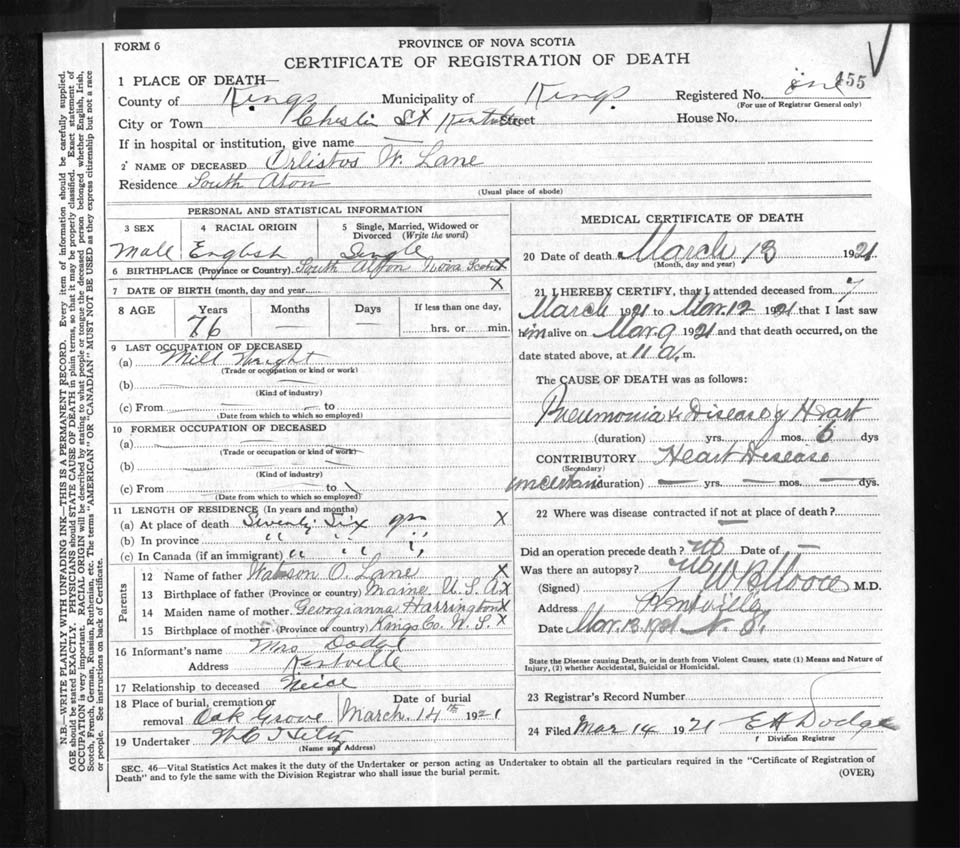 FORM 6
PROVINCE OF NOVA SCOTIA
CERTIFICATE OF REGISTRATION OF DEATH
1 PLACE OF DEATH—
County of Kings Municipality of Kings Registered No. one 455
(For use of Registrar General only)
City or Town Street House No.
If in hospital or institution, give name —
2 NAME OF DECEASED Orlistos W. Lane
Residence South
(Usual place of abode)
PERSONAL AND STATISTICAL INFORMATION
3 SEX 4 RACIAL ORIGIN 5 Single, Married, Widowed or Divorced (Write the word)
Male English Single
6 BIRTHPLACE (Province or Country) South Alton Nova Scotia X
7 DATE OF BIRTH (month, day and year) X
8 AGE Years Months Days If less than one day,
76 — — hrs. or min.
9 LAST OCCUPATION OF DECEASED
(a) Mill Wright
(Trade or occupation or kind or work)
(b)
(Kind of industry)
(c) From to
(Date from which to which so employed)
10 FORMER OCCUPATION OF DECEASED
(a)
(Trade or occupation or kind of work)
(b)
(Kind of industry)
(c) From to
(Date from which to which so employed)
11 LENGTH OF RESIDENCE (In years and months)
(a) At place of death Seventy Six yrs X
(b) In province " " "
(c) In Canada (if an immigrant) " " "
Parents
12 Name of father Watson O. Lane X
13 Birthplace of father (Province or country) Maine U.S.A. X
14 Maiden name of mother Georgianna Harrington X
15 Birthplace of mother (Province or country) Kings Co. N.S. X
16 Informant's name Mrs
Address Kentville
17 Relationship to deceased Neice
18 Place of burial, cremation or removal Oak Grove Date of burial March 14th 1921
19 Undertaker
(Name and Address)
MEDICAL CERTIFICATE OF DEATH
20 Date of death March 13 1921
(Month, day and year)
21 I HEREBY CERTIFY, that I attended deceased from 7
March 1921 to Mar. 12 1921 that I last saw
him alive on Mar. 9 1921 and that death occurred, on the
date stated above, at 11 a. m.
The CAUSE OF DEATH was as follows:
Pneumonia & Disease of Heart
(duration) yrs. mos. 6 dys
CONTRIBUTORY Heart Disease
(Secondary)
uncertain (duration) — yrs. — mos. — dys.
22 Where was disease contracted if not at place of death?
Did an operation precede death? No Date of —
Was there an autopsy? No
(Signed) W B Moore M.D.
Address Kentville
Date Mar. 13 1921 N.S.
State the Disease causing Death, or in death from Violent Causes, state (1) Means and Nature of
Injury, (2) whether Accidental, Suicidal or Homicidal.
23 Registrar's Record Number
24 Filed Mar 14 1921 E H Dodge
Division Registrar
SEC. 46—Vital Statistics Act makes it the duty of the Undertaker or person acting as Undertaker to obtain all the particulars required in the "Certificate of Registration of
Death" and to fyle the same with the Division Registrar who shall issue the burial permit. (OVER)
N.B.—WRITE PLAINLY WITH UNFADING INK—THIS IS A PERMANENT RECORD. Every item of information should be carefully supplied.
AGE should be stated EXACTLY. PHYSICIANS should STATE CAUSE OF DEATH in plain terms, so that it may be properly classified. Exact statement of
OCCUPATION is very important. RACIAL ORIGIN will be described by stating to what people or tongue the deceased person belonged whether English, Irish,
Scotch, French, German, Russian, Ruthenian, etc. The terms "AMERICAN" OR "CANADIAN" MUST NOT BE USED as they express citizenship but not a race
or people. See instructions on back of Certificate.